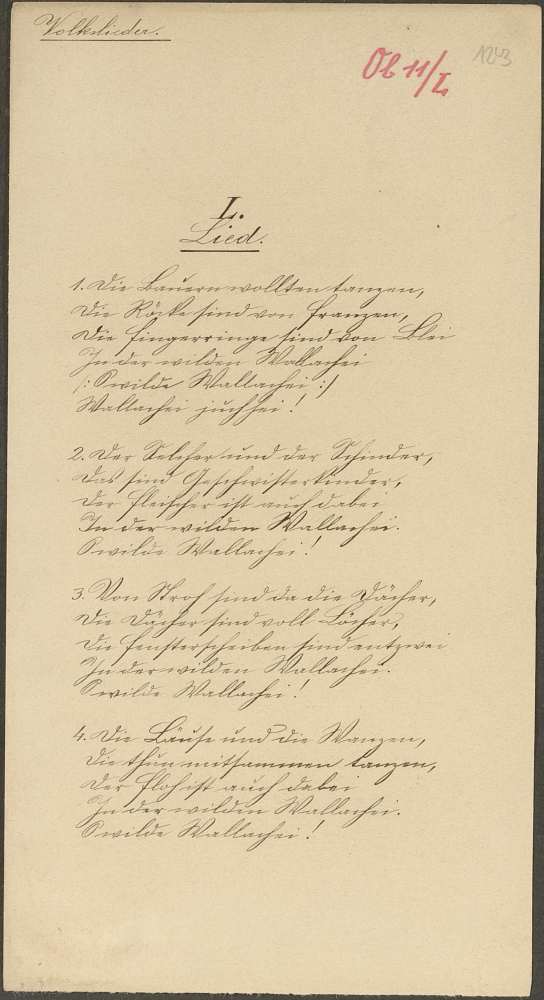 Volkslieder.
Ob 11/I
123
I.
Lied.
1. Die Bauern wollten tanzen,
Die Röcke sind von Franzen,
Die Fingerringe sind von Blei
In der wilden Wallachei
/: O wilde Wallachei :/
Wallachei juchhei!
2. Der Selcher und der Schinder,
Das sind Geschwisterkinder,
Der Fleischer ist auch dabei
In der wilden Wallachei.
O wilde Wallachei!
3. Von Stroh sind da die Dächer,
Die Dächer sind voll Löcher,
Die Fensterscheiben sind entzwei
In der wilden Wallachei.
O wilde Wallachei!
4. Die Läuse und die Wanzen,
Die thun mitsammen tanzen,
Der Floh ist auch dabei
In der wilden Wallachei.
O wilde Wallachei!